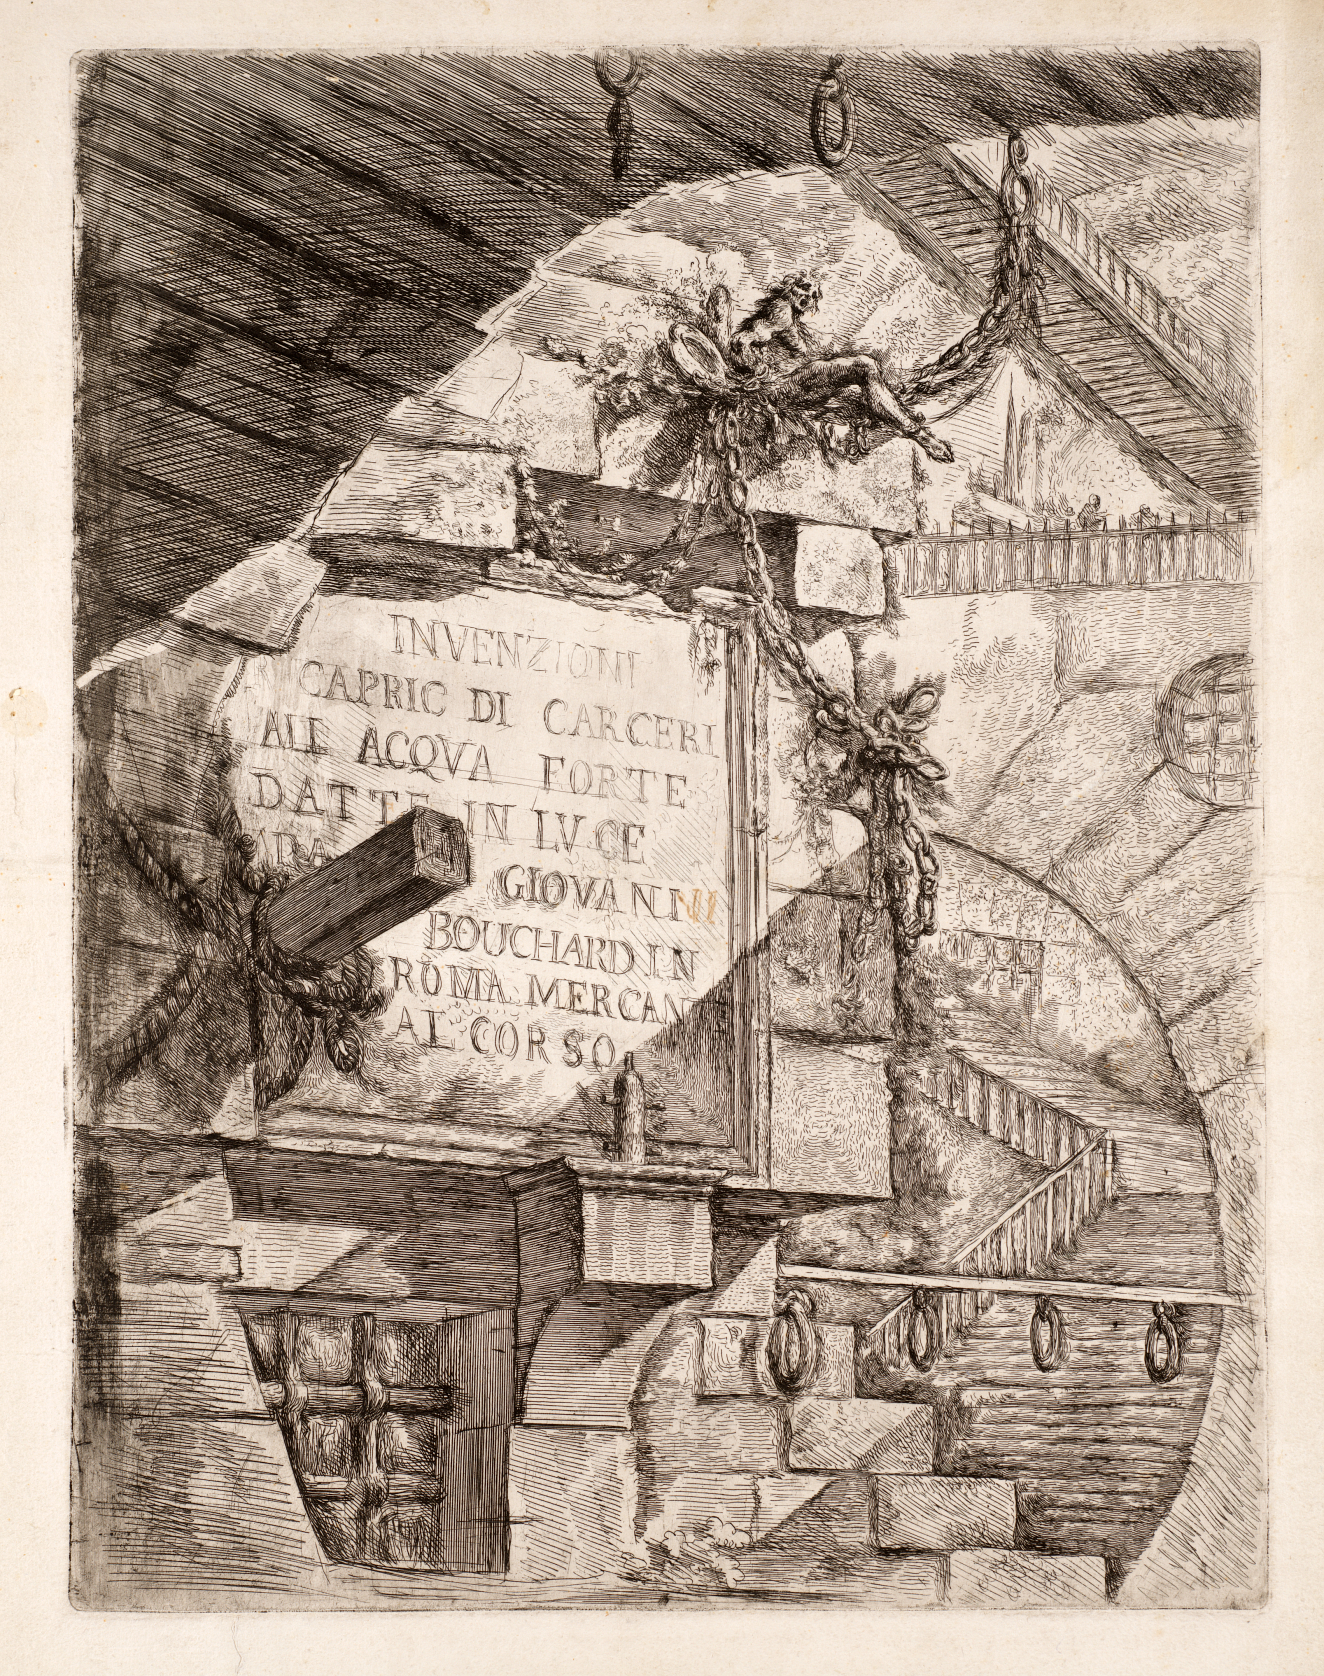 INVENZIONI
CAPRIC DI CARCERI
ALL ACQVA FORTE
DATTE IN LVCE
GIOVANNI
BOUCHARD IN
ROMA MERCAN
AL CORSO